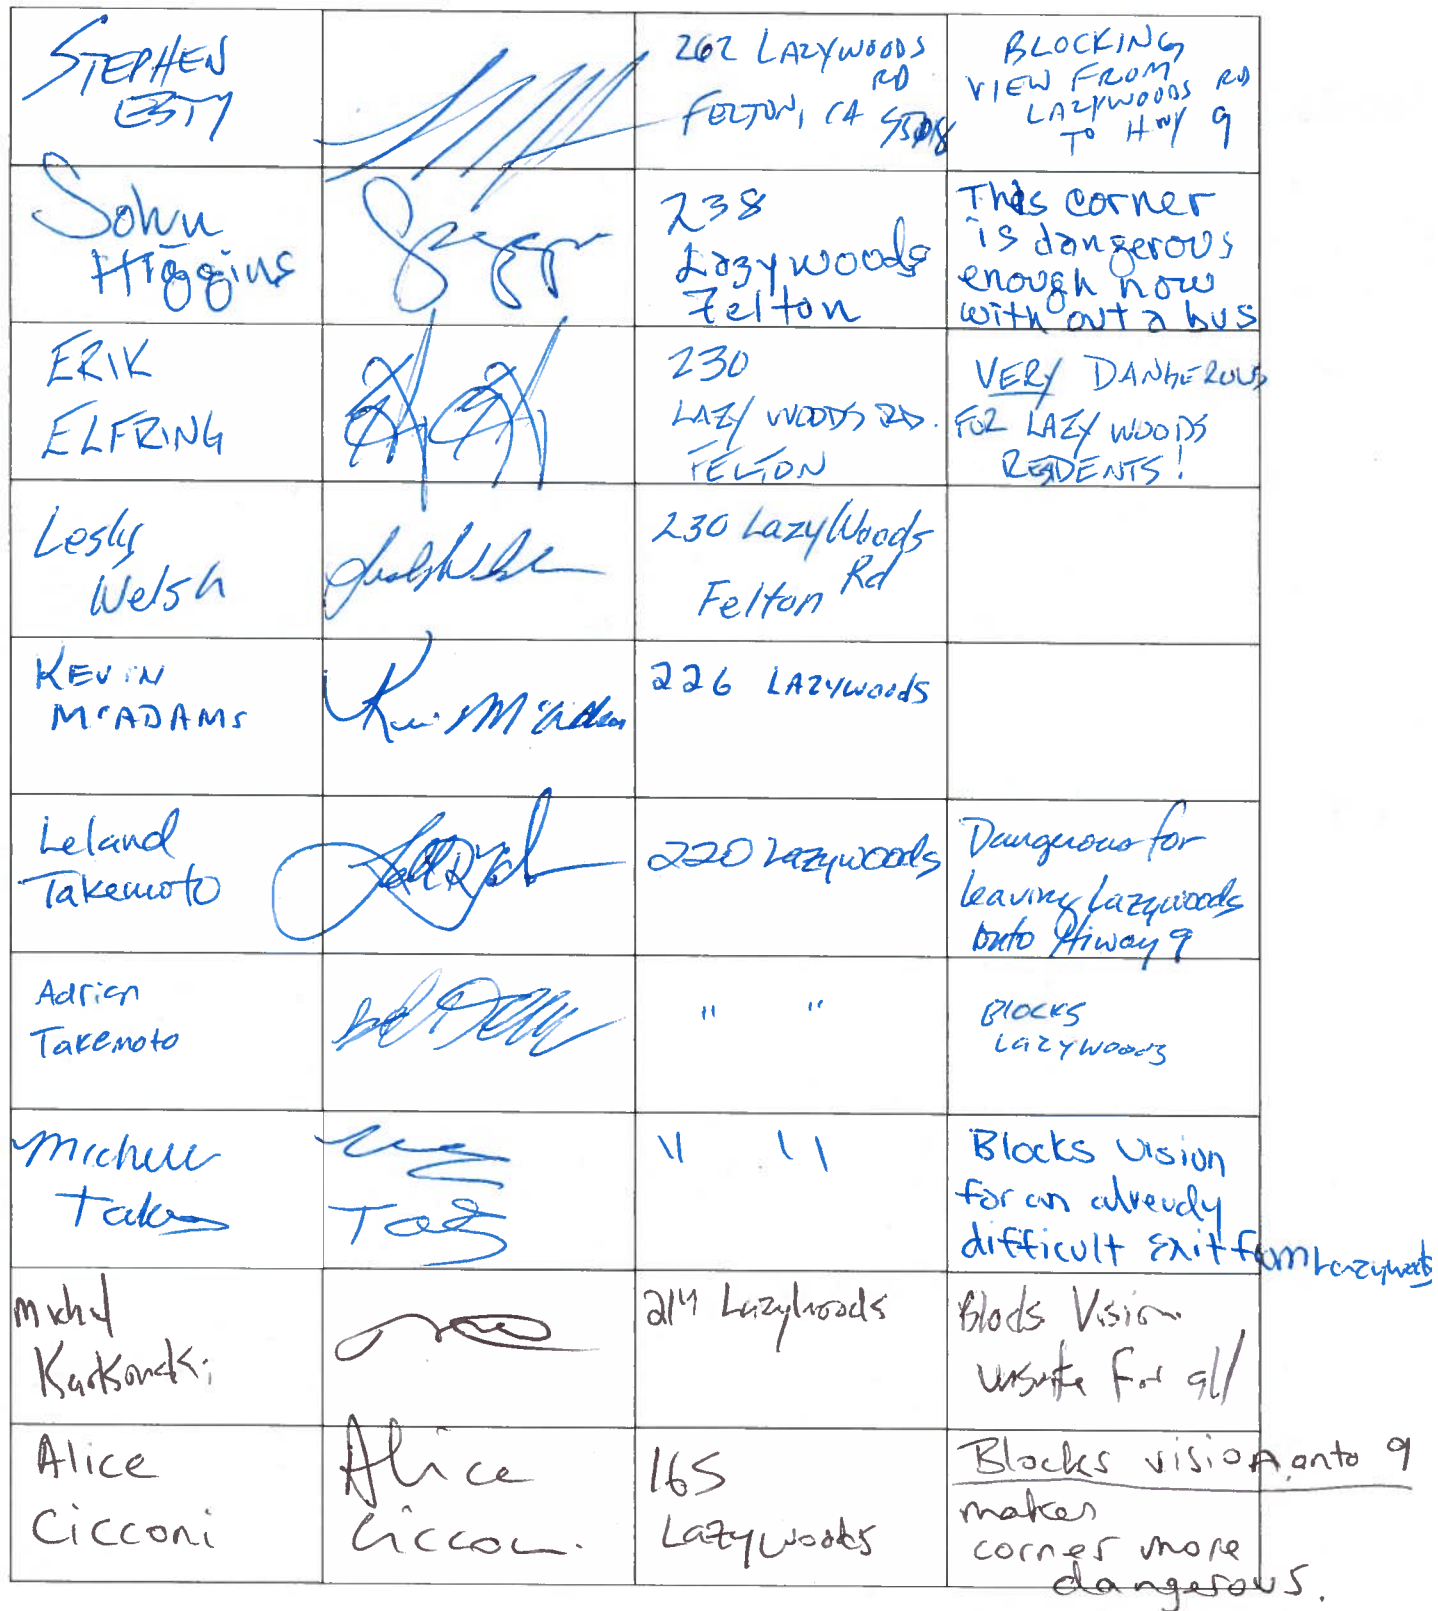 STEPHEN
ESTY
262 LAZYWOODS
RD
FELTON, CA
BLOCKING
VIEW FROM
LAZYWOODS RD
TO HWY 9
John
Higgins
238
Lazywoods
Felton
This corner
is dangerous
enough now
with out a bus
ERIK
ELFRING
230
LAZY WOODS RD.
FELTON
VERY DANGEROUS
FOR LAZY WOODS
RESIDENTS!
Lesly
Welsh
230 Lazy Woods
Rd
Felton
KEVIN
McADAMS
Kevin McAdams
226 LAZYWOODS
Leland
Takemoto
220 Lazywoods
Dangerous for
leaving Lazywoods
onto Hiway 9
Adrien
Takemoto
" "
Blocks
Lazywoods
Michele
" "
Blocks vision
for an already
difficult exit from Lazywoods
214 Lazywoods
Blocks Vision
unsafe for all
Alice
Cicconi
Alice
Cicconi
165
Lazywoods
Blocks vision onto 9
makes
corner more
dangerous.